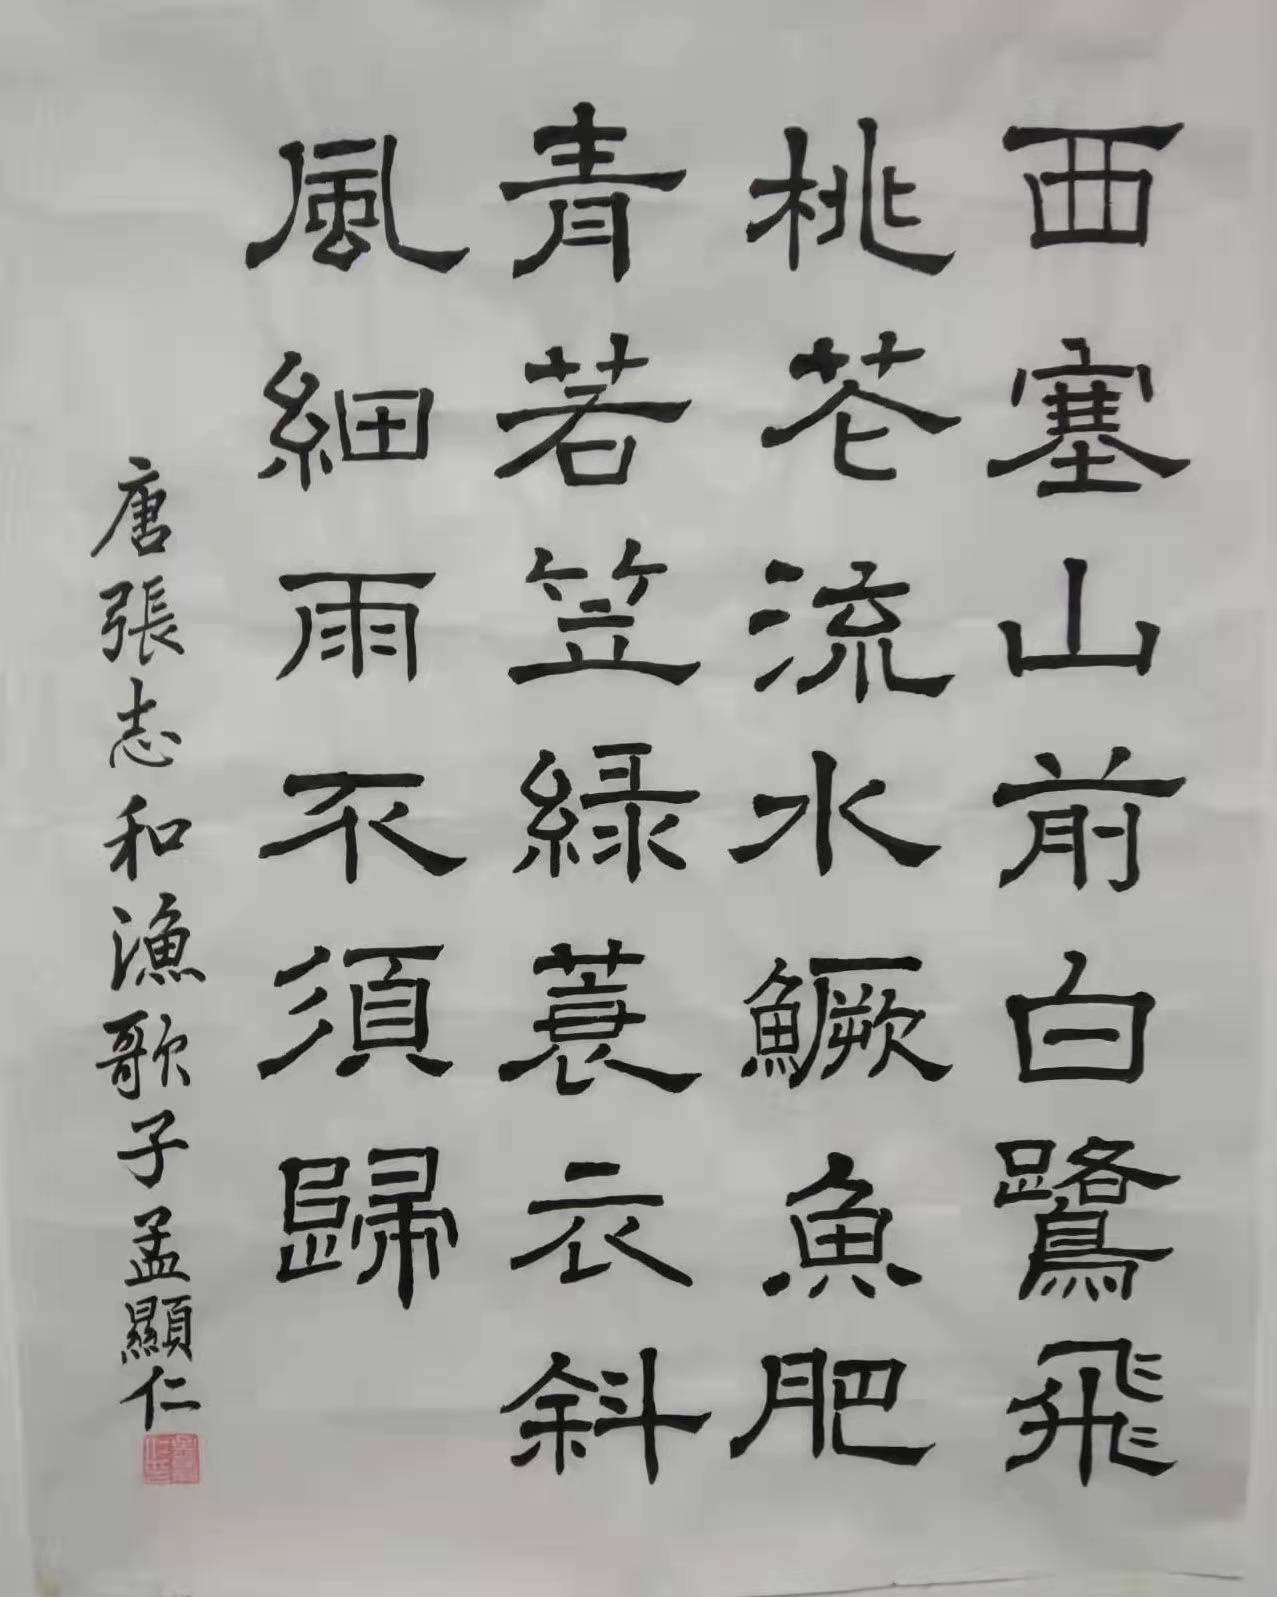 西塞山前白鷺飛
桃花流水鱖魚肥
青若笠緑蓑衣斜
風細雨不須歸
唐張志和漁歌子孟顯仁